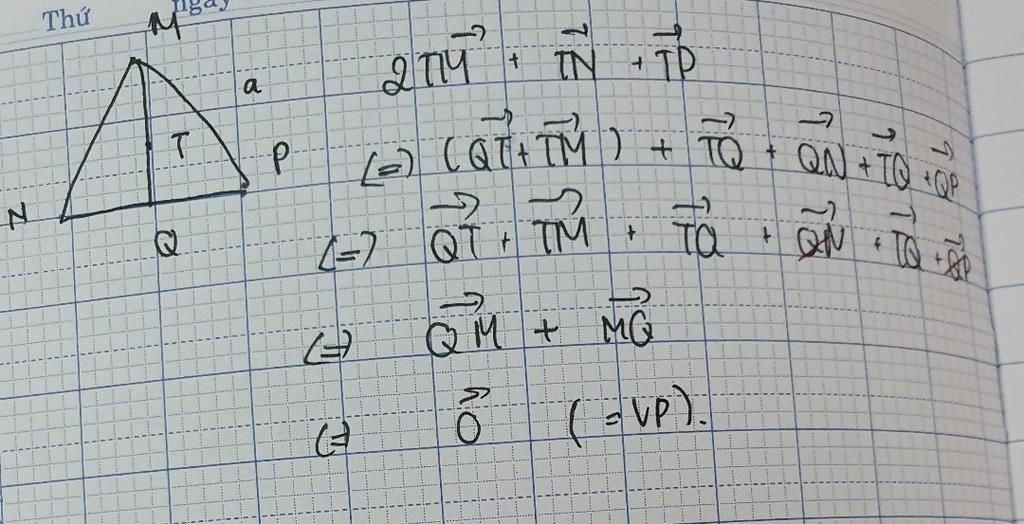 Thứ ngày
M
a
T
P
N
Q
2TM⃗ + TN⃗ + TP⃗
(=) (QT⃗ + TM⃗) + TQ⃗ + QN⃗ + TQ⃗ + QP⃗
(=) QT⃗ + TM⃗ + TQ⃗ + QN⃗ + TQ⃗ + QP⃗
(=) QM⃗ + MQ⃗
(=) 0⃗ (= VP).